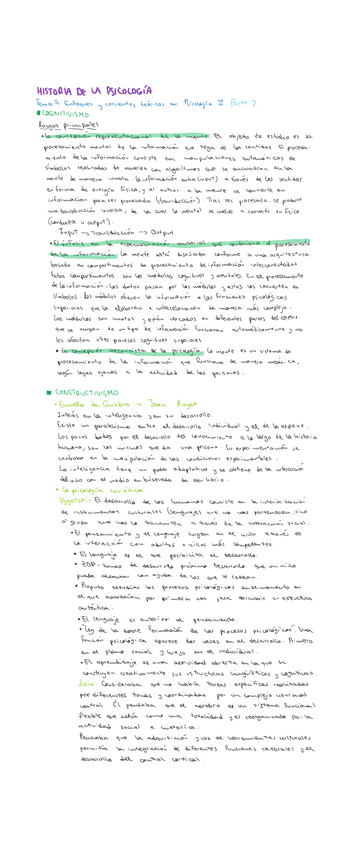 HISTORIA DE LA PSICOLOGÍA
Tema 7: Enfoques y corrientes teóricas en Psicología II Parte 2
COGNITIVISMO
Rasgos principales
• La concepción representacional de la mente. El objeto de estudio es el
procesamiento mental de la información que llega de los sentidos. El procesa-
miento de la información consiste en manipulaciones automáticas de
símbolos realizadas de acuerdo con algoritmos que se encuentran en la
mente de manera innata. La información entra (input) a través de los sentidos
en forma de energía física, y al entrar a la mente se convierte en
información para ser procesada (transducción). Tras ser procesado, se produce
una transducción inversa, de la cual lo mental se vuelve a convertir en físico
(conducta u output).
Input → transducción → Output
• El énfasis en la especialización sensorial que condiciona el procesamiento
de la información. La mente está diseñada conforme a una arquitectura
basada en compartimentos de procesamiento de información interconectados.
Estos compartimentos son los módulos cognitivos y mentales. En el procesamiento
de la información, los datos pasan por los módulos y estos los convierten en
símbolos. Los módulos ofrecen la información a las funciones psicológicas
superiores que la elaboran e interrelacionan de manera más compleja.
Los módulos son innatos y están ubicados en diferentes partes del cerebro
que se ocupan de un tipo de información, funcionan automáticamente y no
les afectan otros procesos cognitivos superiores.
• La concepción mecanicista de la psicología. La mente es un sistema de
procesamiento de la información que funciona de manera mecánica,
según leyes ajenas a la actividad de las personas.
CONSTRUCTIVISMO
• Escuela de Ginebra → Jean Piaget
Interés en la inteligencia y en su desarrollo.
Existe un paralelismo entre el desarrollo individual y el de la especie.
Los pasos dados por el desarrollo del conocimiento a lo largo de la historia
humana, son los mismos que da una persona. Su experimentación se
centraba en la manipulación de las condiciones experimentales.
La inteligencia tiene un poder adaptativo y se obtiene de la interacción
del niño con el medio en búsqueda de equilibrio.
• La psicología soviética
Vygotski: El desarrollo de los humanos consiste en la interiorización
de instrumentos culturales (lenguajes) que no nos pertenecen, sino
al grupo que nos lo transmiten a través de la interacción social.
• El pensamiento y el lenguaje surgen en el niño a través de
la interacción con adultos o niños más competentes.
• El lenguaje es el que posibilita el desarrollo.
• ZDP - zonas de desarrollo próximo. Desarrollo que un niño
puede alcanzar con ayuda de los que le rodean.
• Propuso estudiar los procesos psicológicos en el momento en
el que aparecían por primera vez para descubrir su estructura
auténtica.
• El lenguaje es anterior al pensamiento.
• "Ley de la doble formación de los procesos psicológicos". Una
función psicológica aparece dos veces en el desarrollo. Primero
en el plano social y luego en el individual.
• El aprendizaje es una actividad abierta en la que se
construyen creativamente sus estructuras lingüísticas y cognitivas.
Luria: Consideraba que no había tareas específicas realizadas
por diferentes zonas y coordinadas por un complejo neuronal
central. Él pensaba que el cerebro es un sistema funcional
flexible que actúa como una totalidad y es reorganizado por la
actividad social e histórica.
Pensaba que la adquisición y uso de herramientas culturales
permitía la integración de diferentes funciones cerebrales y el
desarrollo del control cortical.